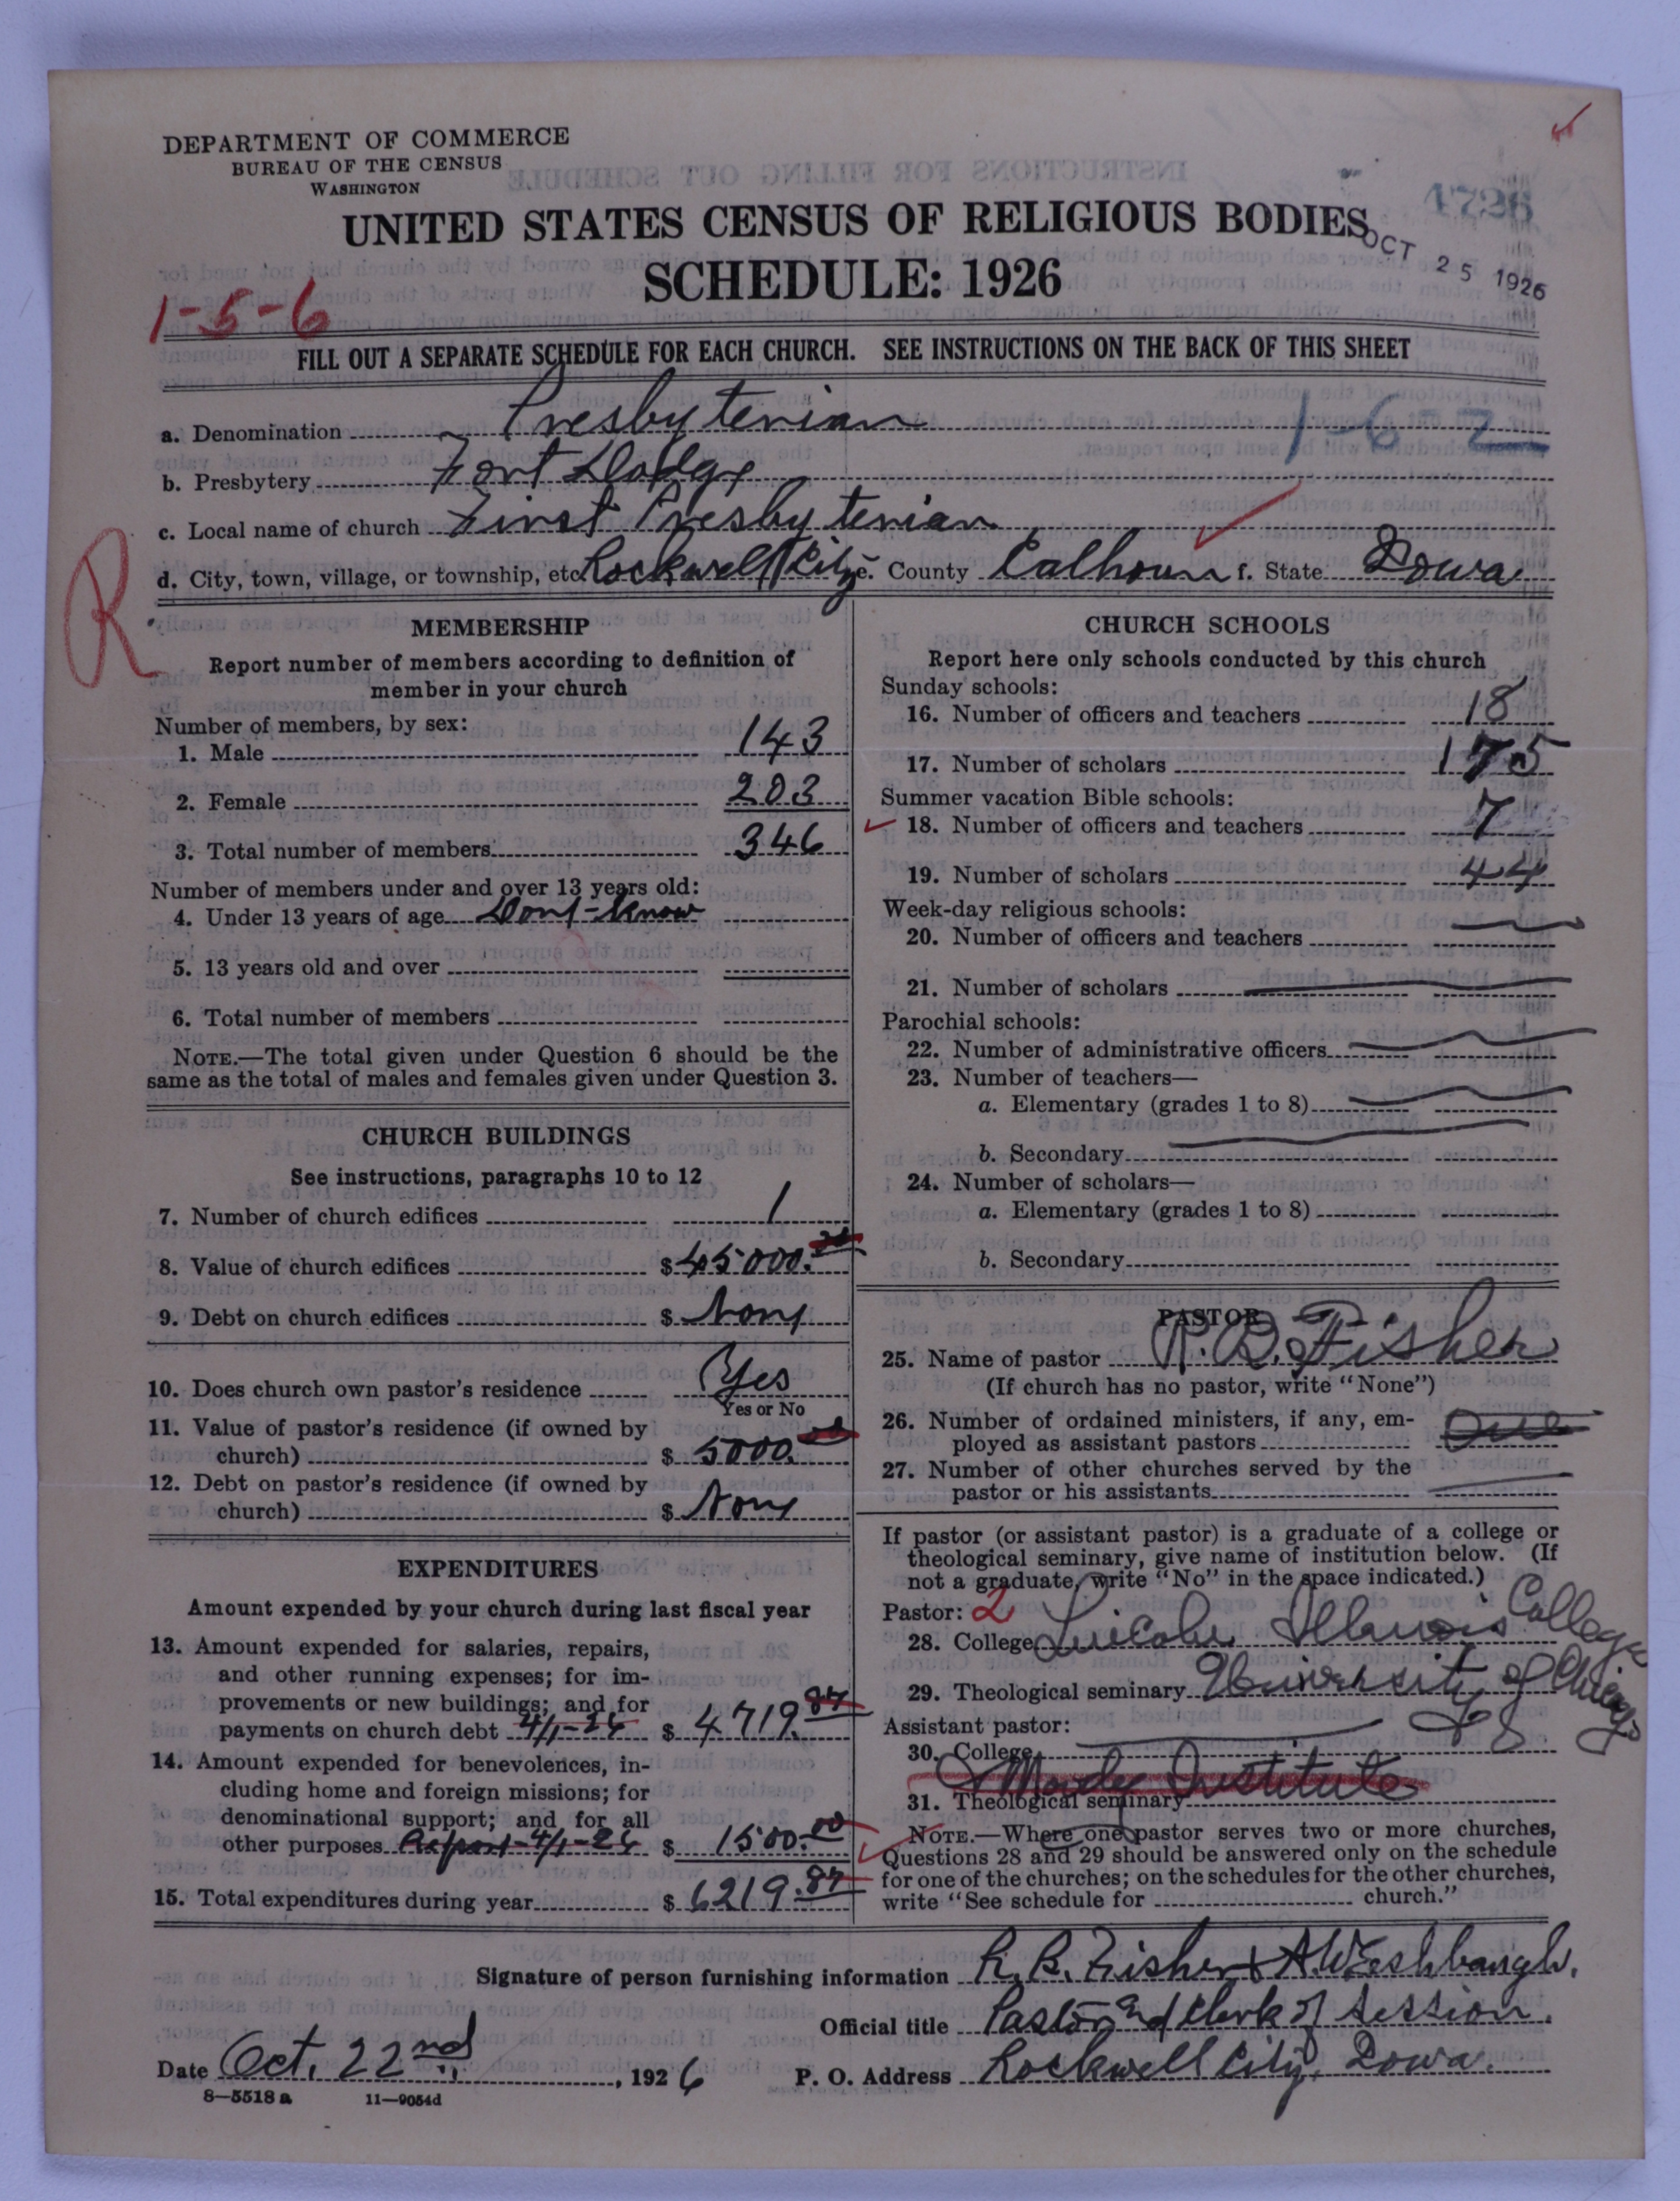 DEPARTMENT OF COMMERCE
BUREAU OF THE CENSUS
WASHINGTON
UNITED STATES CENSUS OF RELIGIOUS BODIES
SCHEDULE: 1926
4726
OCT 25 1926
1-5-6
FILL OUT A SEPARATE SCHEDULE FOR EACH CHURCH. SEE INSTRUCTIONS ON THE BACK OF THIS SHEET
a. Denomination Presbyterian
1-6-2
b. Presbytery Fort Dodge
c. Local name of church First Presbyterian
d. City, town, village, or township, etc. Rockwell City e. County Calhoun f. State Iowa
R
MEMBERSHIP
Report number of members according to definition of
member in your church
Number of members, by sex:
1. Male 143
2. Female 203
3. Total number of members 346
Number of members under and over 13 years old:
4. Under 13 years of age Dont-Know
5. 13 years old and over
6. Total number of members
NOTE.—The total given under Question 6 should be the
same as the total of males and females given under Question 3.
CHURCH BUILDINGS
See instructions, paragraphs 10 to 12
7. Number of church edifices 1
8. Value of church edifices $45000.
9. Debt on church edifices $ None
10. Does church own pastor's residence Yes
Yes or No
11. Value of pastor's residence (if owned by
church) $ 5000.
12. Debt on pastor's residence (if owned by
church) $ None
EXPENDITURES
Amount expended by your church during last fiscal year
13. Amount expended for salaries, repairs,
and other running expenses; for im-
provements or new buildings; and for
payments on church debt 4/1-26 $ 4719.87
14. Amount expended for benevolences, in-
cluding home and foreign missions; for
denominational support; and for all
other purposes Report-4/1-26 $ 1500.00
15. Total expenditures during year $ 6219.87
CHURCH SCHOOLS
Report here only schools conducted by this church
Sunday schools:
16. Number of officers and teachers 18
17. Number of scholars 175
Summer vacation Bible schools:
18. Number of officers and teachers 7
19. Number of scholars 44
Week-day religious schools:
20. Number of officers and teachers
21. Number of scholars
Parochial schools:
22. Number of administrative officers
23. Number of teachers—
a. Elementary (grades 1 to 8)
b. Secondary
24. Number of scholars—
a. Elementary (grades 1 to 8)
b. Secondary
PASTOR
25. Name of pastor R. B. Fisher
(If church has no pastor, write "None")
26. Number of ordained ministers, if any, em-
ployed as assistant pastors One
27. Number of other churches served by the
pastor or his assistants
If pastor (or assistant pastor) is a graduate of a college or
theological seminary, give name of institution below. (If
not a graduate, write "No" in the space indicated.)
Pastor: 2
28. College Lincoln Illinois College
29. Theological seminary University of Chicago
Assistant pastor:
30. College
& Moody Institute
31. Theological seminary
NOTE.—Where one pastor serves two or more churches,
Questions 28 and 29 should be answered only on the schedule
for one of the churches; on the schedules for the other churches,
write "See schedule for church."
Signature of person furnishing information R. B. Fisher & A.W. Eshbaugh.
Official title Pastor and Clerk of Session.
Date Oct. 22nd, 1926 P. O. Address Rockwell City, Iowa.
8—5518 a 11—9054d